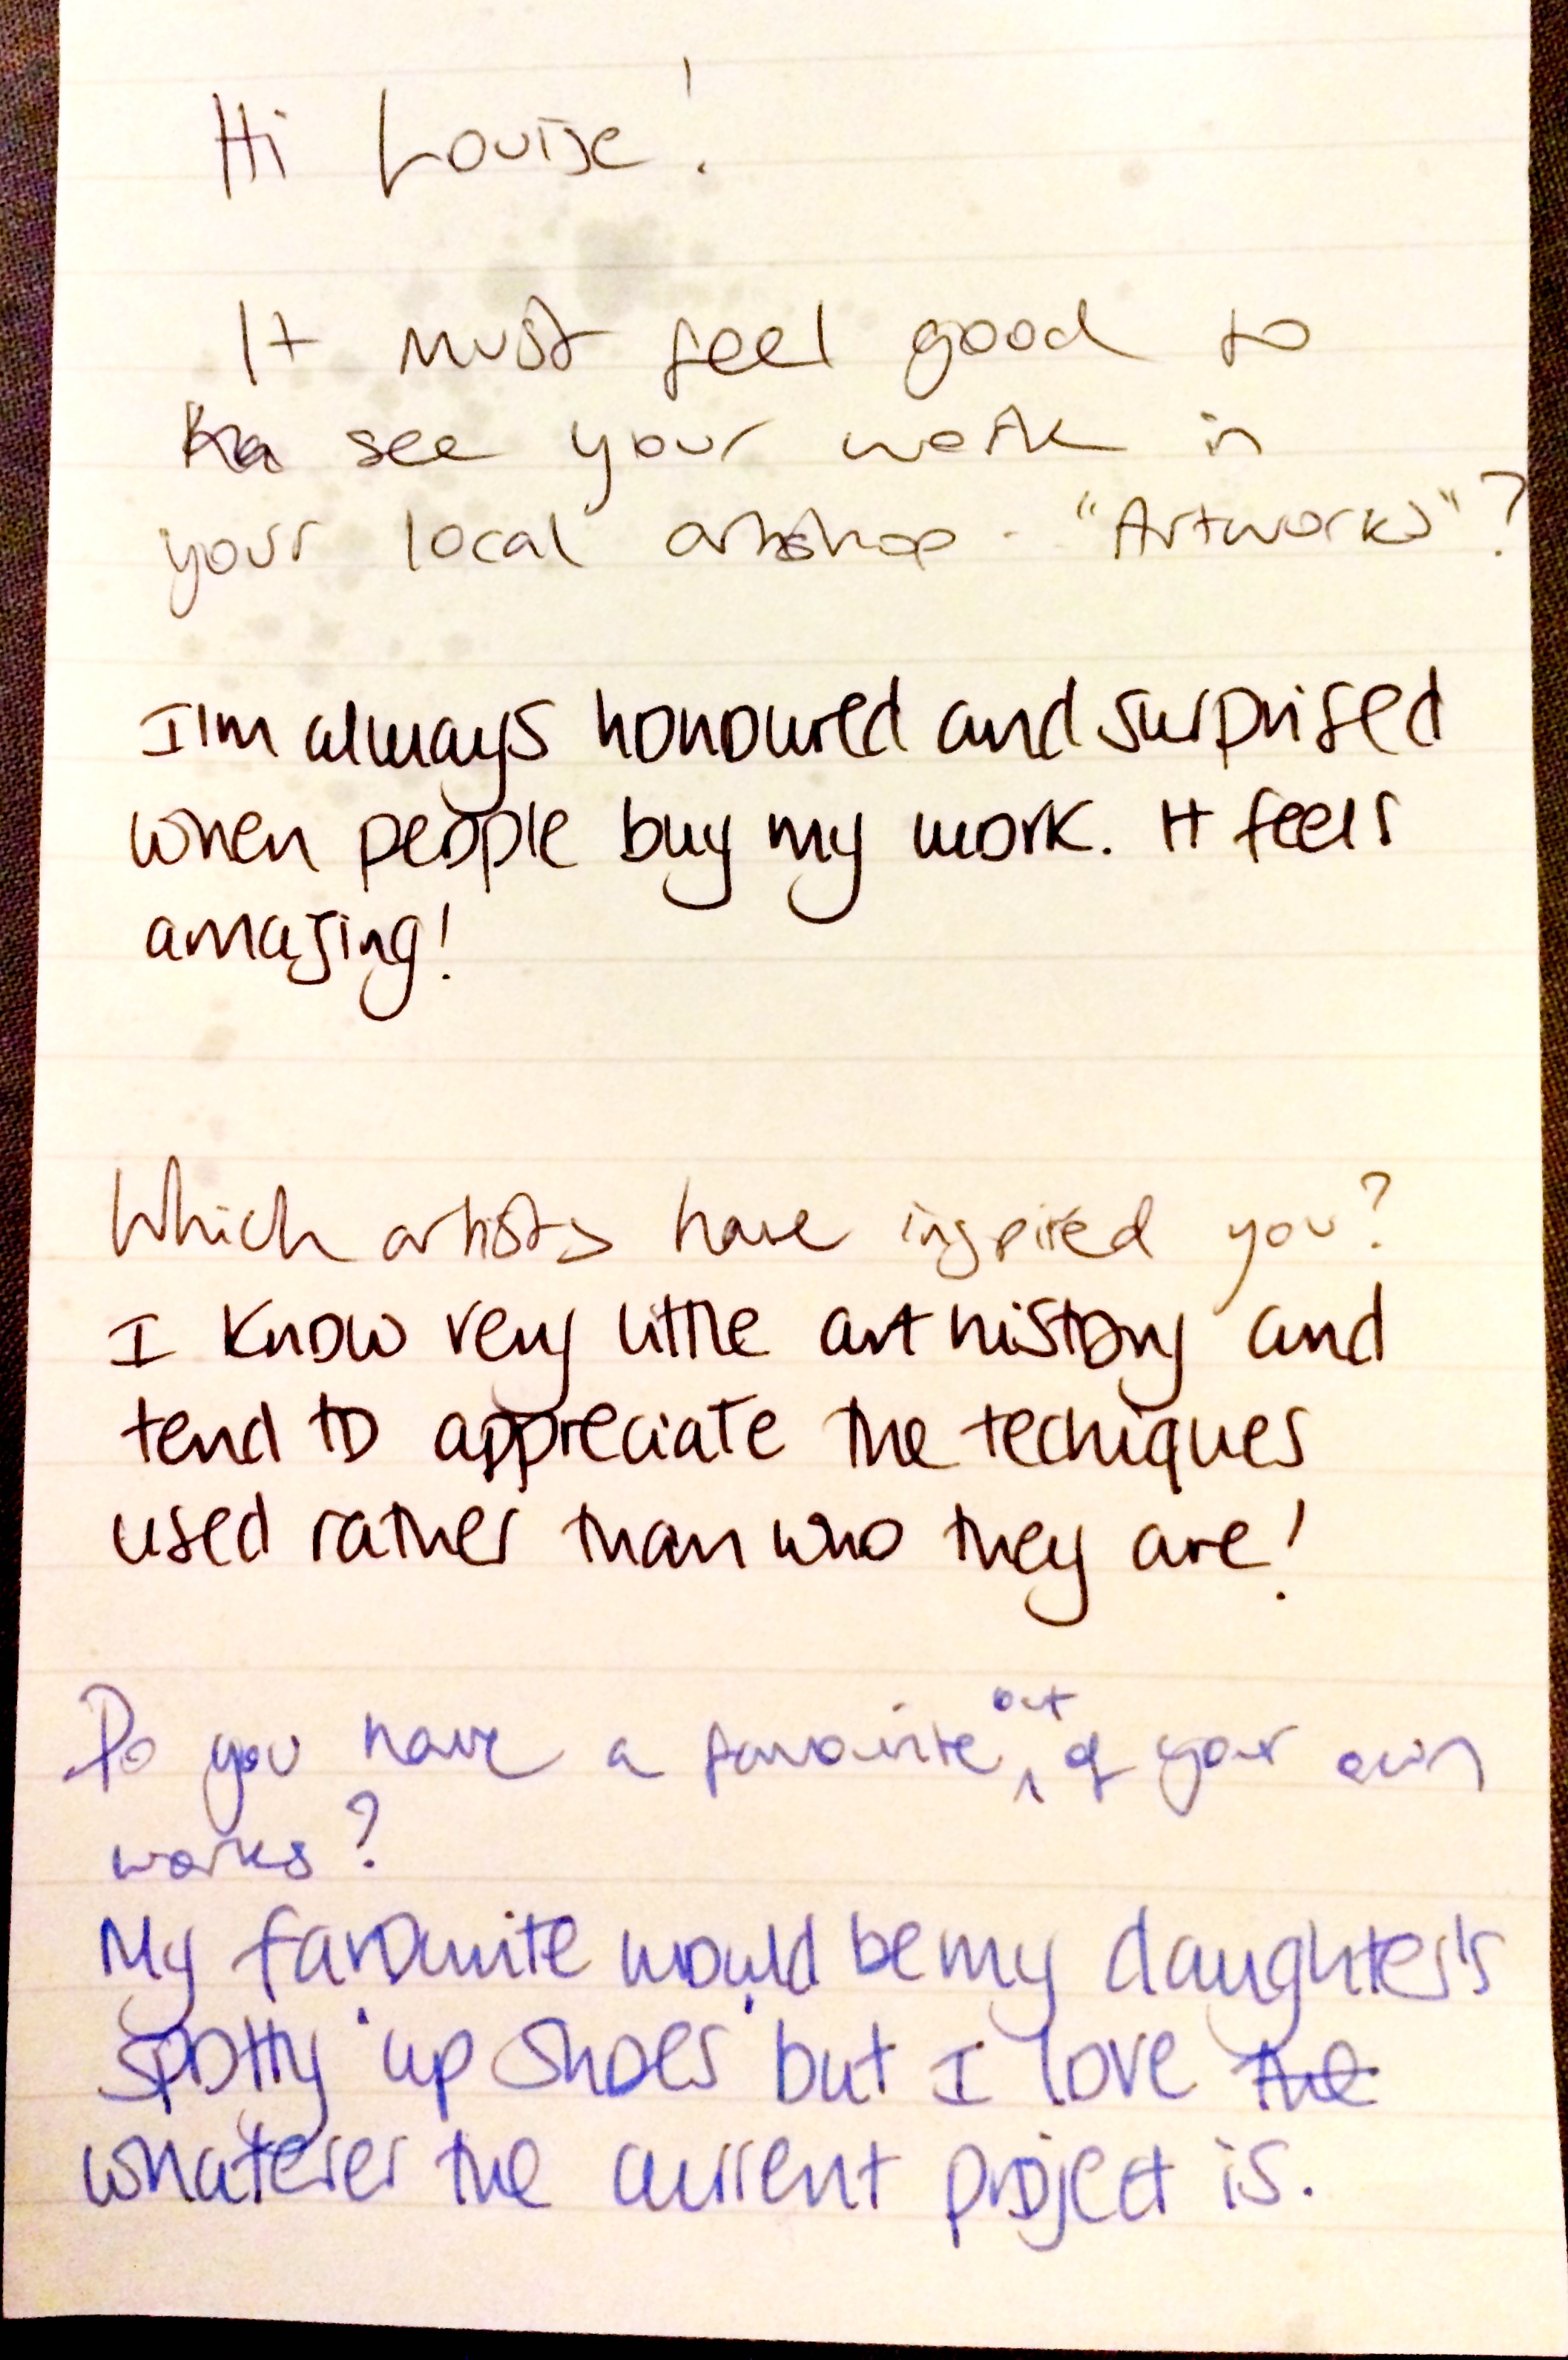 Hi Louise!
It must feel good to
see your work in
your local artshop - "Artworks"?
I'm always honoured and surprised
when people buy my work. It feels
amazing!
Which artists have inspired you?
I know very little art history and
tend to appreciate the techiques
used rather than who they are!
Do you have a favourite out of your own
works?
My favourite would be my daughter's
spotty 'up shoes' but I love the
whatever the current project is.